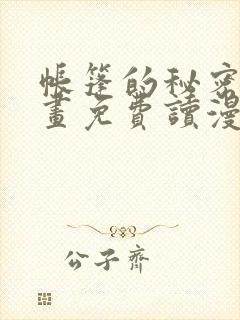 帳篷的秘密
畫免費讀漫
公子齊